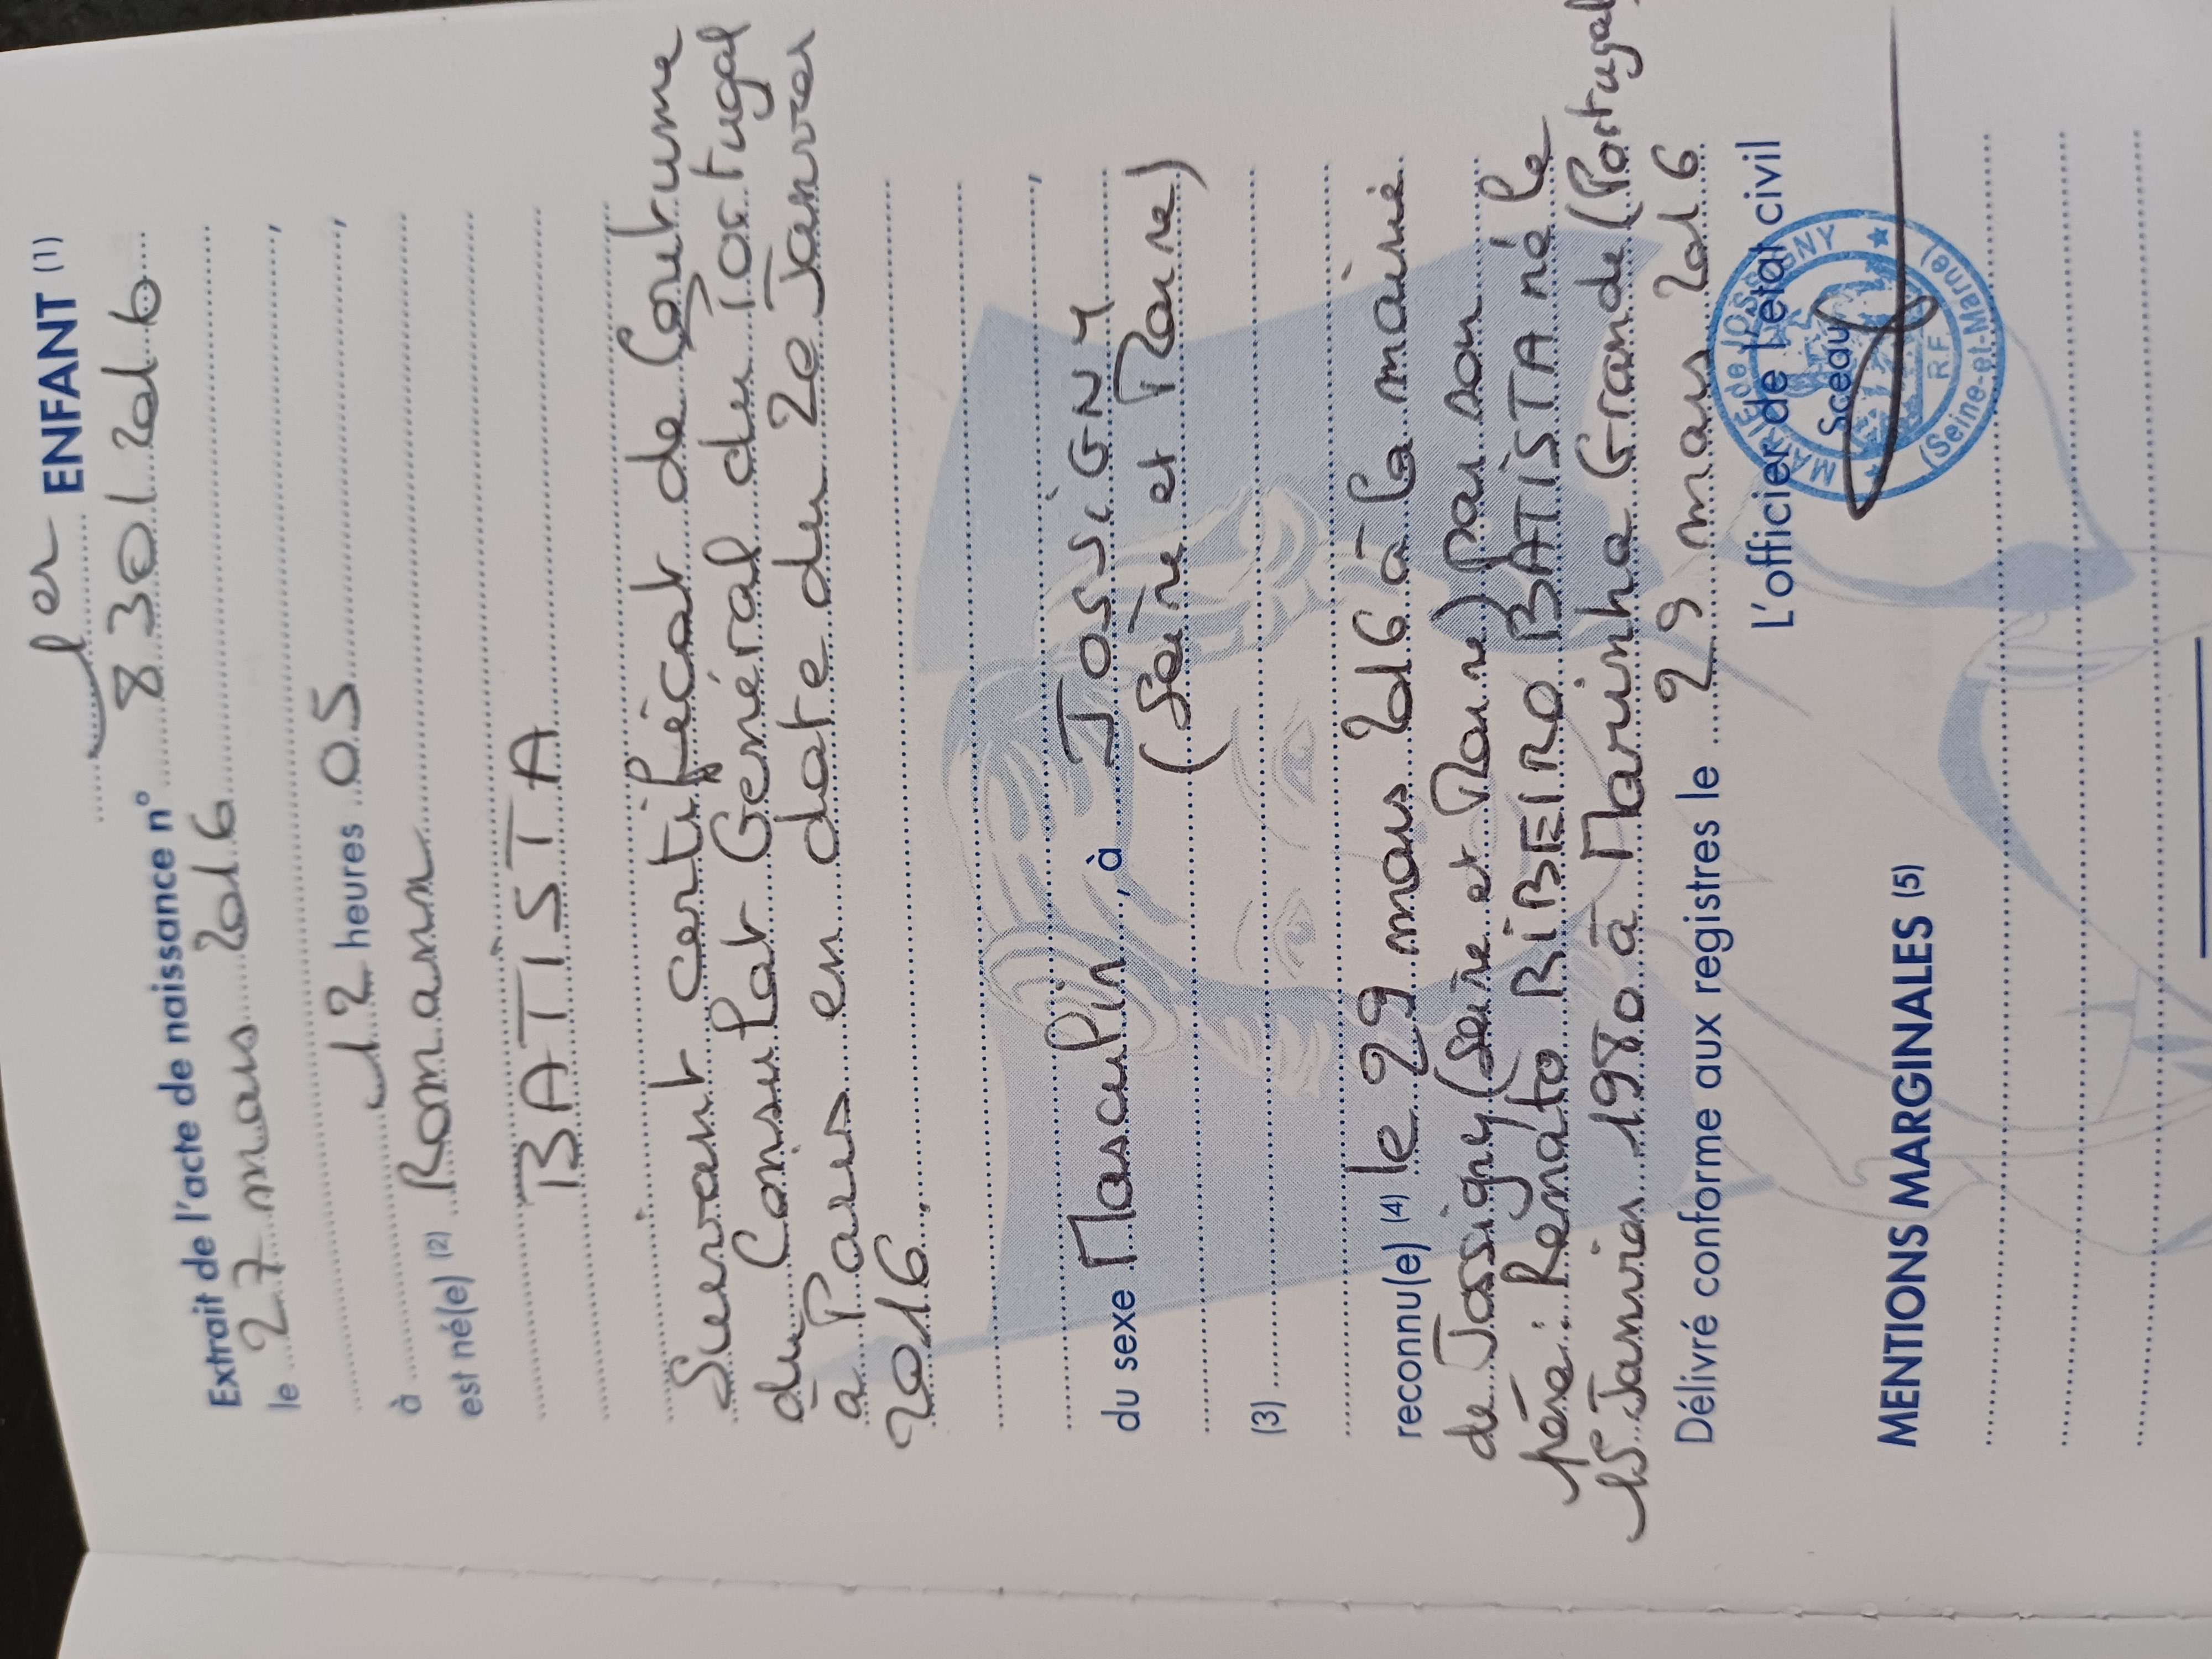 1er ENFANT (1)
Extrait de l'acte de naissance n° 830/2016
le 27 mars 2016,
à 12 heures 05,
est né(e) (2) Romann
BATISTA
Suivant certificat de Coutume
du Consulat Général du Portugal
à Paris en date du 20 Janvier
2016.,
du sexe Masculin, à JOSSIGNY
(Seine et Marne)
(3)
reconnu(e) (4) le 29 mars 2016 à la mairie
de Jossigny (Seine et Marne) par son
père: Renato RIBEIRO BATISTA né le
15 Janvier 1980 à Marinha Grande (Portugal)
Délivré conforme aux registres le 29 mars 2016
L'officier de l'état civil
Sceau
MAIRIE de JOSSIGNY
R.F.
(Seine-et-Marne)
MENTIONS MARGINALES (5)